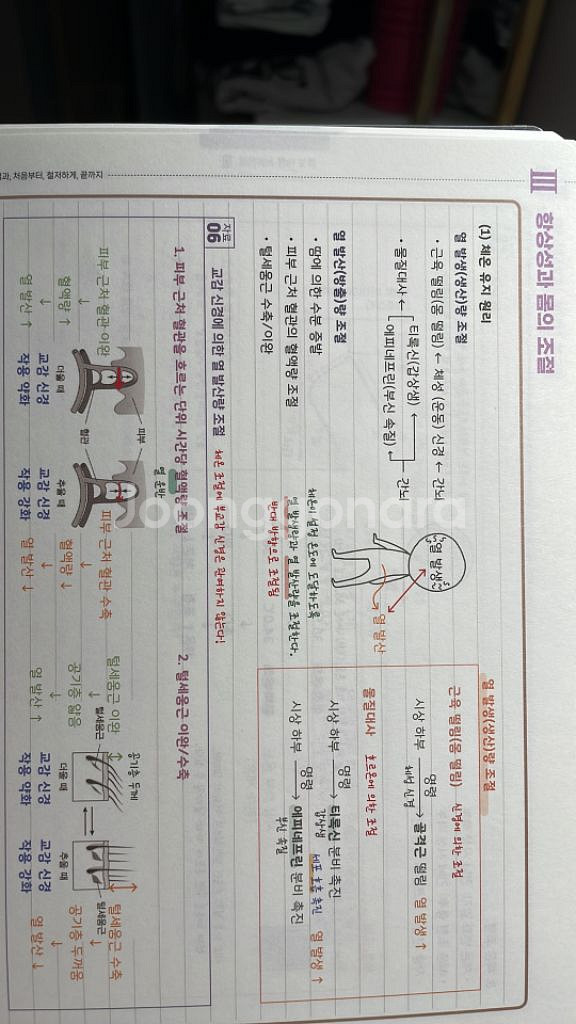 과, 처음부터, 철저하게, 끝까지
III
항상성과 몸의 조절
(1) 체온 유지 원리
열 발생(생산)량 조절
· 근육 떨림(몸 떨림) ← 체성 (운동) 신경 ← 간뇌
티록신(갑상샘) ←
· 물질대사 ← 간뇌
에피네프린(부신 속질) ←
열 발생
열 발산
열 발산(방출)량 조절
· 땀에 의한 수분 증발
· 피부 근처 혈관의 혈액량 조절
· 털세움근 수축/이완
체온이 설정 온도에 도달하도록
열 발생량과 열 발산량을 조절한다.
반대 방향으로 조절됨
열 발생(생산)량 조절
근육 떨림(몸 떨림) 신경에 의한 조절
명령
시상 하부 → 골격근 떨림 열 발생 ↑
체성 신경
물질대사 호르몬에 의한 조절
명령
시상 하부 → 티록신 분비 촉진
갑상샘 세포 호흡 촉진 열 발생 ↑
명령
시상 하부 → 에피네프린 분비 촉진
부신 속질
자료 06 교감 신경에 의한 열 발산량 조절 체온 조절에 부교감 신경은 관여하지 않는다!
1. 피부 근처 혈관을 흐르는 단위 시간당 혈액량 조절
열 운반
피부 근처 혈관 이완
↓
혈액량 ↑
↓
열 발산 ↑
피부
혈관
더울 때
교감 신경
작용 약화
추울 때
교감 신경
작용 강화
피부 근처 혈관 수축
↓
혈액량 ↓
↓
열 발산 ↓
2. 털세움근 이완/수축
털세움근 이완
↓
공기층 얇음
↓
열 발산 ↑
공기층 두께
털세움근
더울 때
교감 신경
작용 약화
추울 때
교감 신경
작용 강화
털세움근
털세움근 수축
↓
공기층 두꺼움
↓
열 발산 ↓
Joongonara